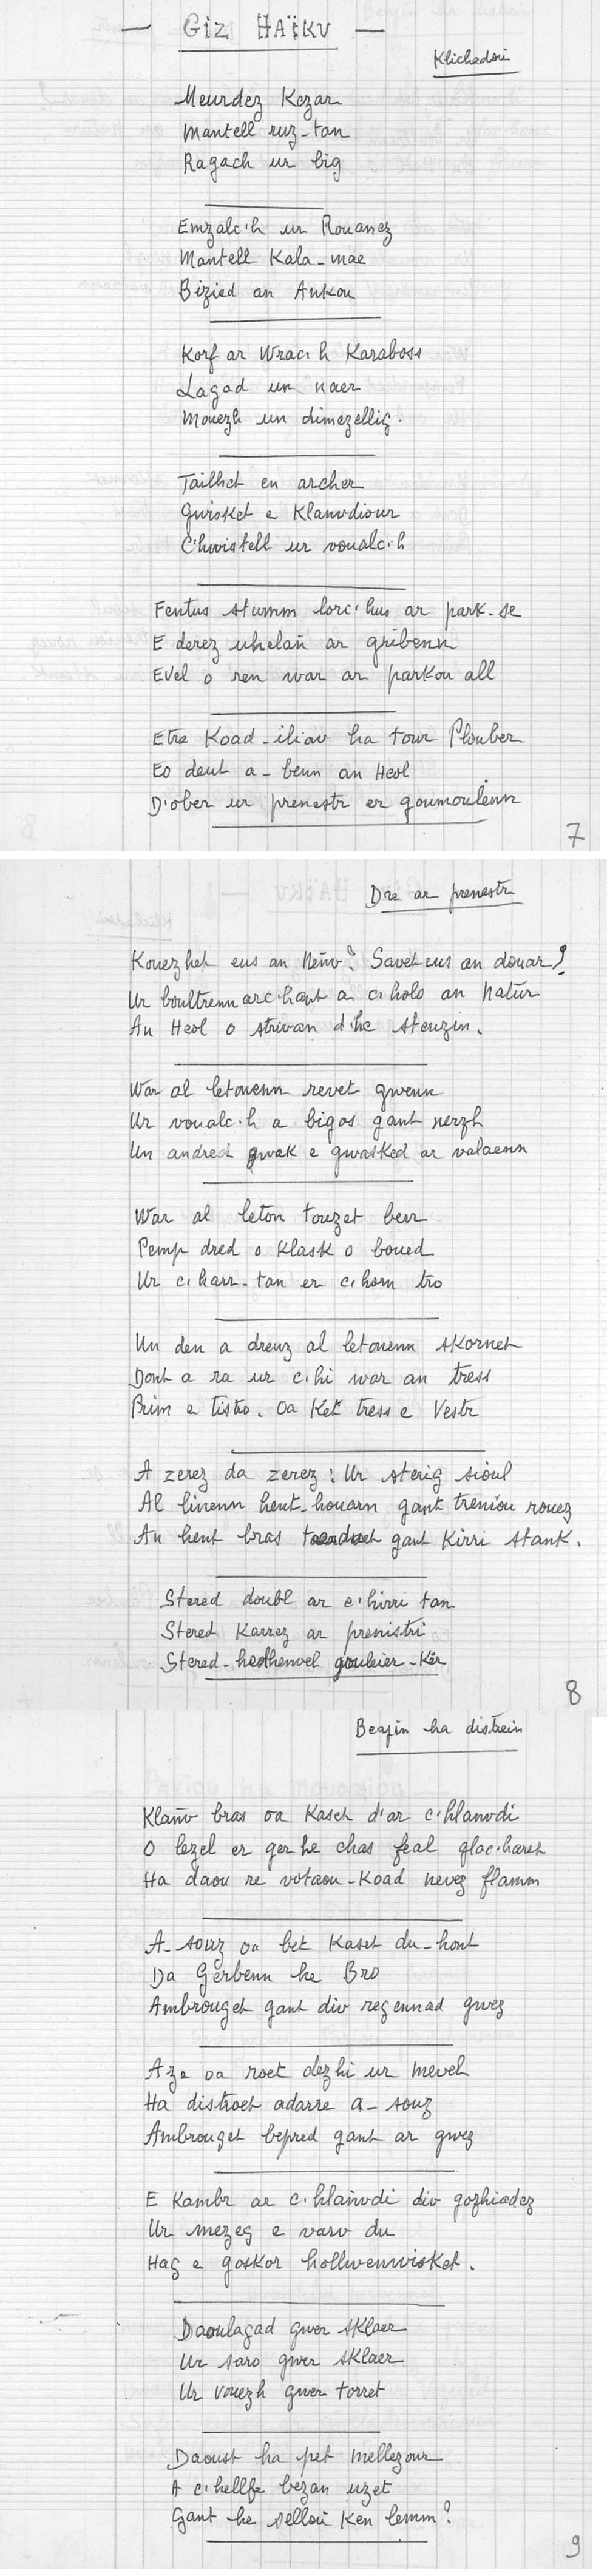 — Giz HAÏKU —
Klichedoù
Meurdez Kezar
Mantell ruz-tan
Ragach ur big
Emzalc'h ur Rouanez
Mantell Kala-mae
Bizied an Ankou
Korf ar Wrac'h Karaboss
Lagad un naer
Mouezh un dimezellig.
Tailhet en archer
Gwisket e Klañvdiour
C'hwistell ur voualc'h
Fentus stumm lorc'hus ar park-se
E derez uhelañ ar gribenn
Evel o ren war ar parkou all
Etre Koad-iliav ha tour Plouber
Eo deut a-benn an Heol
D'ober ur prenestr er goumoulenn
7
Dre ar prenestr
Kouezhet eus an Neñv? Savet eus an douar?
Ur boultrenn arc'hant a c'holo an Natur
An Heol o strivañ d'he steuziñ.
War al letonenn revet gwenn
Ur voualc'h a bigos gant nerzh
Un andred gwak e gwasked ar valaenn
War al leton touzet berr
Pemp dred o klask o boued
Ur c'harr-tan er c'horn tro
Un den a dreuz al letonenn skornet
Dont a ra ur c'hi war an tress
Prim e tistro. Oa ket tress e Vestr
A zerez da zerez: Ur sterig sioul
Al linenn hent-houarn gant treniou rouez
An hent bras gant Kirri stank.
Stered doubl ar c'hirri tan
Stered Karrez ar prenistri
Stered-heolhenvel gouleier-Kêr
8
Beajiñ ha distreiñ
Klañv bras oa Kaset d'ar c'hlañvdi
O lezel er ger he chas feal glac'haret
Ha daou re votaou-Koad nevez flamm
A-souz oa bet Kaset du-hont
Da Gerbenn he Bro
Ambrouget gant div regennad gwez
Aze oa roet dezhi ur mevel
Ha distroet adarre a-souz
Ambrouget bepred gant ar gwez
E Kambr ar c'hlañvdi div gozhiadez
Ur mezeg e varv du
Hag e goskor hollwennwisket.
Daoulagad gwer sklaer
Ur saro gwer sklaer
Ur vouezh gwer torret
Daoust ha pet mellezour
A c'hellfe bezañ uzet
Gant he selloù ken lemm?
9